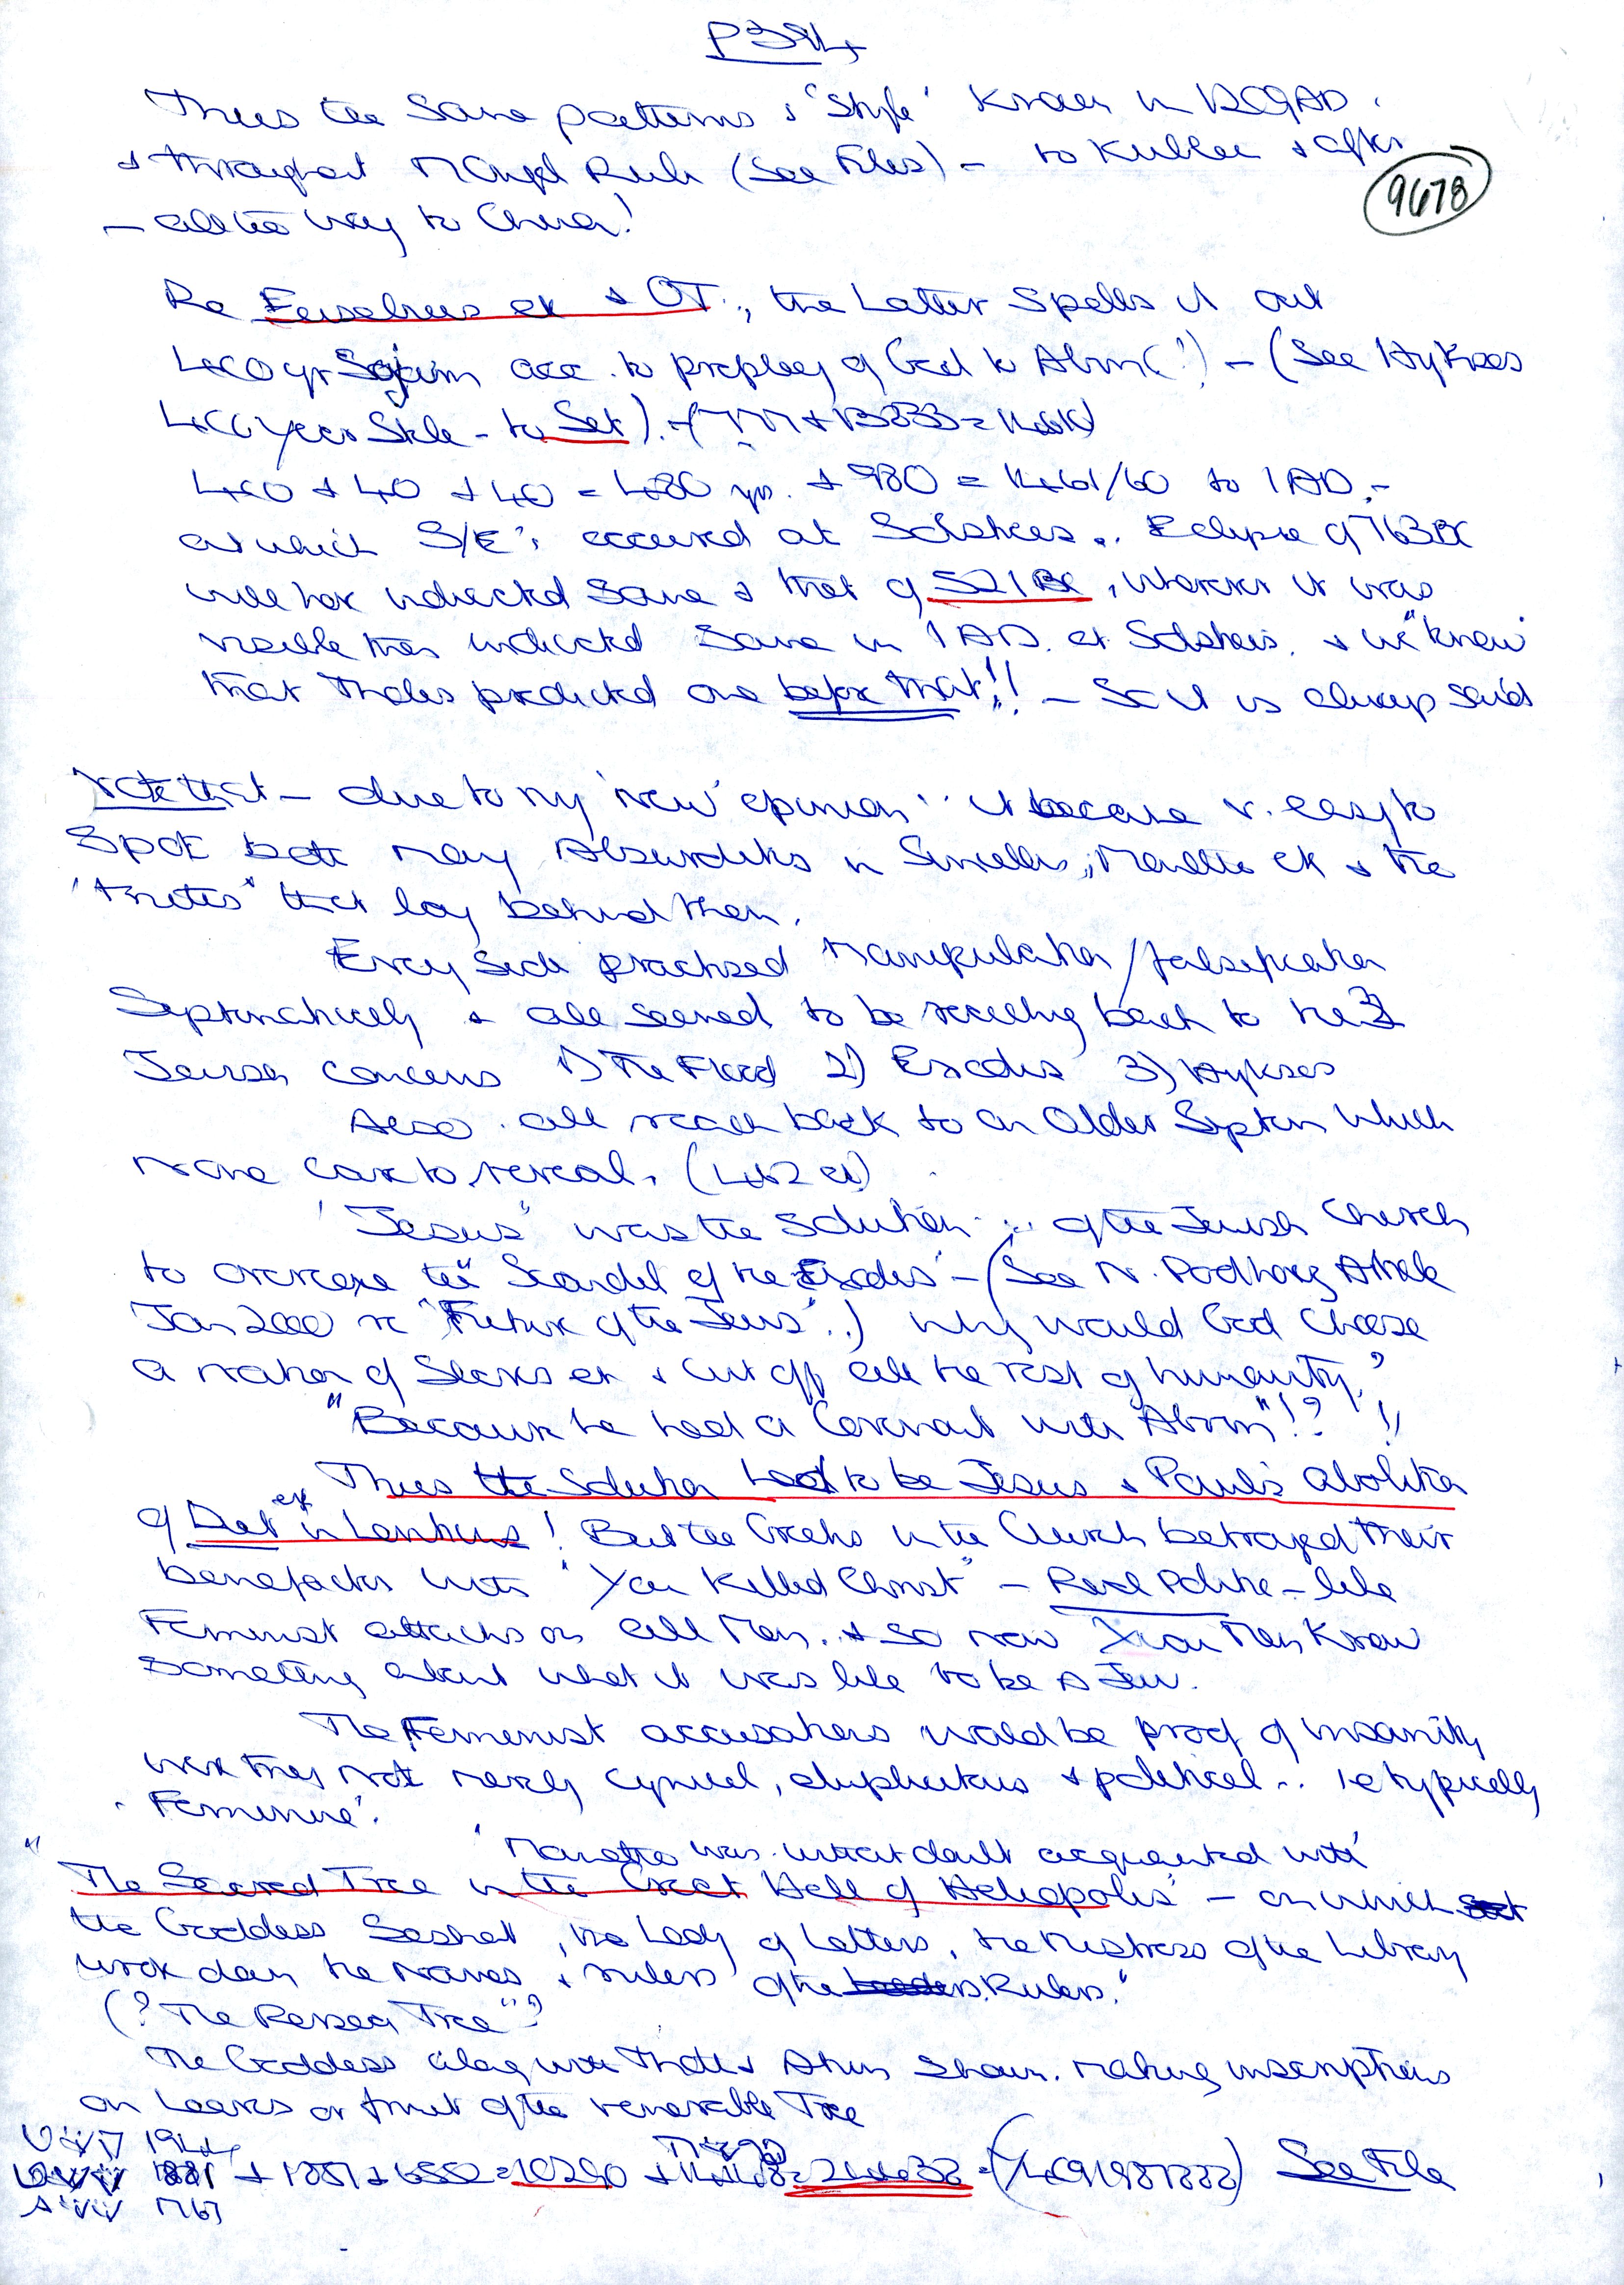 P394
Thus the same patterns & 'Style' known in 1209AD.
& throughout Mongol Rule (See Files) – to Kublai & after
9678
– all the way to China!
Re Eusebius etc & OT., the Latter Spells it out
400 yr Sojourn acc. to prophecy of God to Abrm(?) – (See Hyksos
400 year Stele - to Set).
400 + 40 + 40 = 480 yrs. + 980 = 1461/60 to 1 AD.-
at which S/E's occurred at Solstices.. Eclipse of 763BC
will have indicated same & that of 521BC, wherever it was
visible then indicated same in 1 AD. at Solstices. & we "know"
that Thales predicted one before that!! – So it is always said
Note that – due to my 'new' opinion .. it became v. easy to
Spot both many Absurdities in Syncellus, Manetho etc & the
'truths' that lay behind them.
Every side practised manipulation/falsification
Systematically & all seemed to be reaching back to the 3
Jewish concerns 1) The Flood 2) Exodus 3) Hyksos
Also all reach back to an Older System which
none care to reveal.
'Jesus' was the solution .. of the Jewish Church
to overcome the "Scandel of the Exodus" – (See N. Podhorz Article
Jan 2000 re "Future of the Jews"..) Why would God choose
a nation of Slaves etc & cut off all the rest of humanity?
"Because he had a Covenant with Abrm"!? !!
Thus the Solution had to be Jesus & Paul's abolition
of Diet etc in Leviticus! But the Greeks in the Church betrayed their
benefactors with "You Killed Christ" – Real Politic – like
Feminist attacks on all Men. & so now Xian Men Know
something about what it was like to be a Jew.
The Feminist accusations would be proof of insanity
were they not merely cynical, duplicitous & political.. i.e typically
'Feminine'.
'Manetho was without doubt acquainted with'
"The Sacred Tree in the Great Hall of Heliopolis' – on which
the Goddess Seshat, the Lady of Letters, the Mistress of the Library
wrote down the names & rulers of the Rulers."
(? "The Persea Tree"?
The Goddess along with Thoth & Atum shown making inscriptions
on Leaves or fruit of the venerable Tree
1944
1881 + 1881 + 6552 = 10290 See File
1767